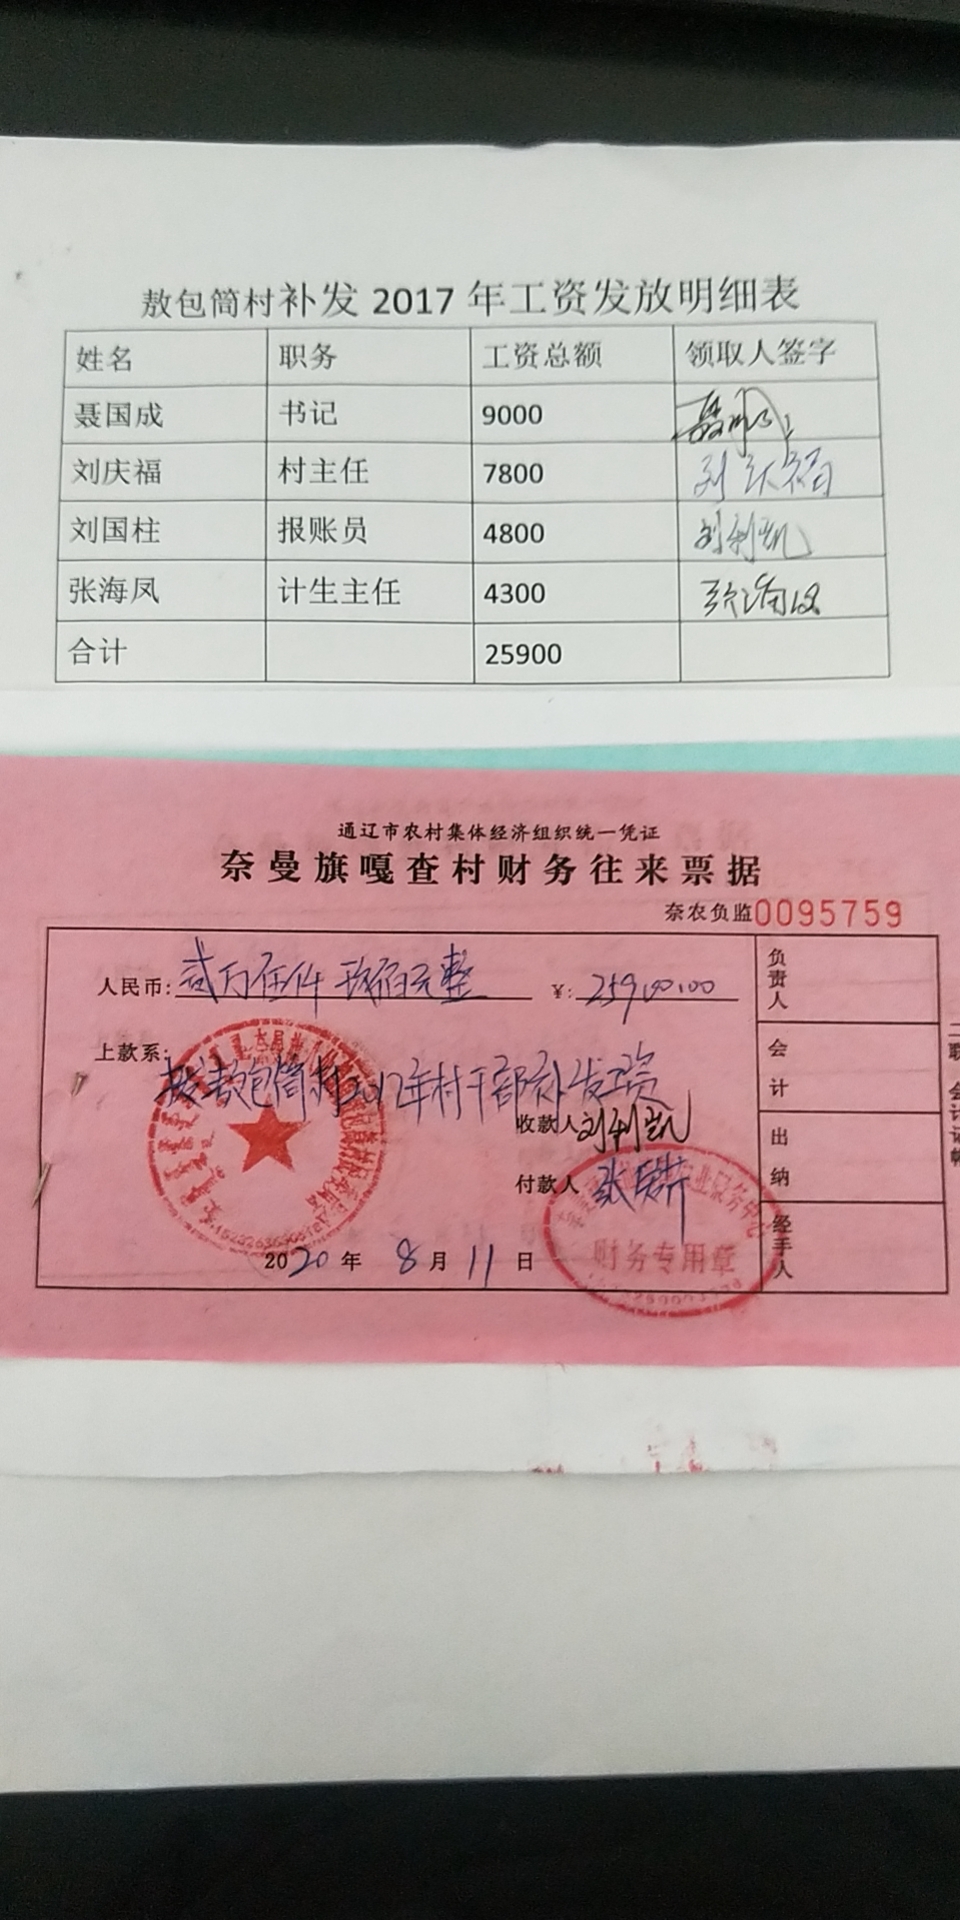 敖包筒村补发2017年工资发放明细表
姓名 职务 工资总额 领取人签字
聂国成 书记 9000
刘庆福 村主任 7800 刘庆福
刘国柱 报账员 4800 刘利凯
张海凤 计生主任 4300 张海凤
合计 25900
通辽市农村集体经济组织统一凭证
奈曼旗嘎查村财务往来票据
奈农负监0095759
人民币:贰万伍仟玖佰元整 ¥:25900.00
上款系:拨敖包筒村2017年村干部补发工资
收款人刘利凯
付款人
2020年8月11日
负责人
会计
出纳
经手人
二联会计记帐
财务专用章